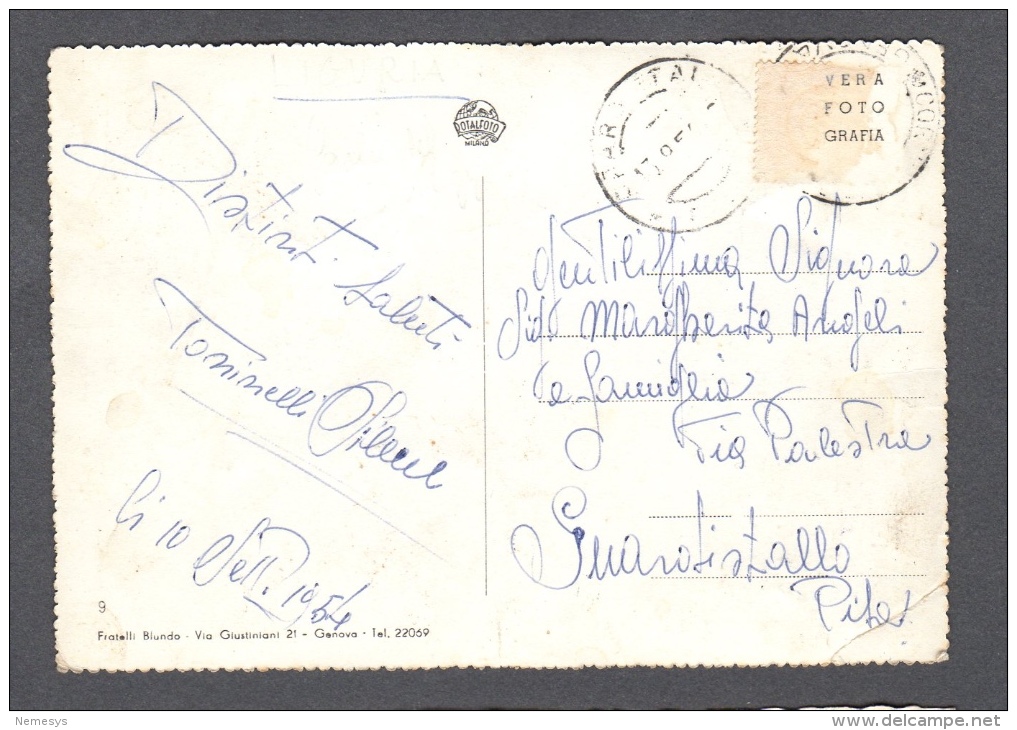 ROTALFOTO
MILANO
VERA
FOTO
GRAFIA
Distinti Saluti
Toninelli
li 10 Sett. 1954
Gentilissima Signora
Sig. Margherita Angeli
e famiglia
Via Palestro
Guardistallo
Pisa
9
Fratelli Biundo - Via Giustiniani 21 - Genova - Tel. 22069
Nemesys
www.delcampe.net